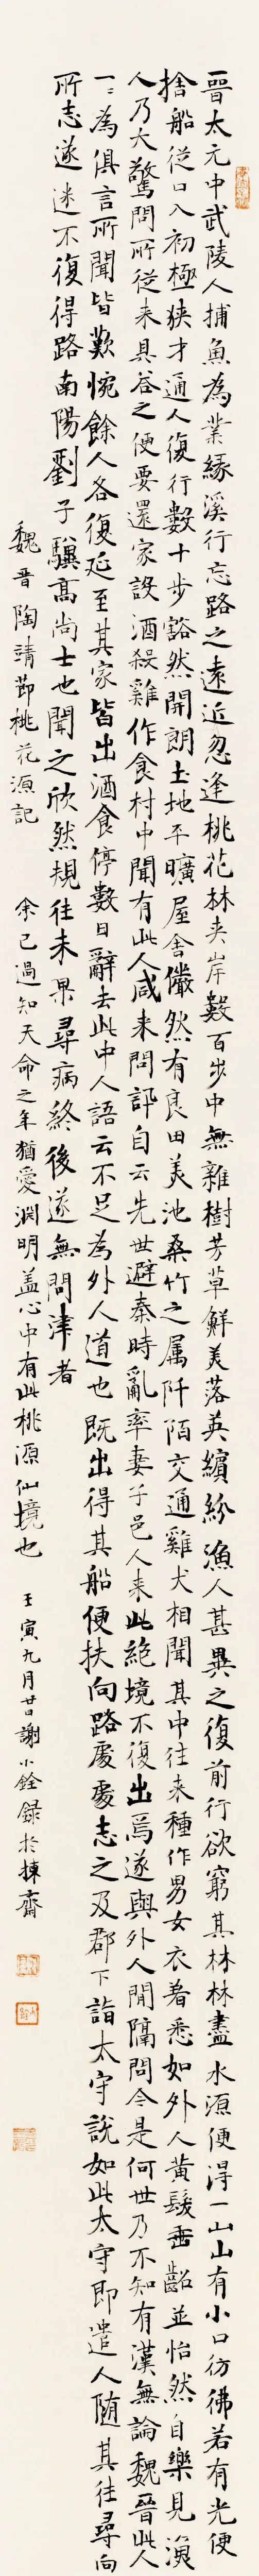 晉太元中武陵人捕魚為業緣溪行忘路之遠近忽逢桃花林夾岸數百步中無雜樹芳草鮮美落英繽紛漁人甚異之復前行欲窮其林林盡水源便得一山山有小口彷彿若有光便
捨船從口入初極狹才通人復行數十步豁然開朗土地平曠屋舍儼然有良田美池桑竹之属阡陌交通雞犬相聞其中往来種作男女衣著悉如外人黃髮垂齠並怡然自樂見漁
人乃大驚問所從来具答之便要還家設酒殺雞作食村中聞有此人咸来問訊自云先世避秦時亂率妻子邑人来此絶境不復出焉遂與外人閒隔問今是何世乃不知有漢無論魏晉此人
一一為俱言所聞皆歎惋餘人各復延至其家皆出酒食停數日辭去此中人語云不足為外人道也既出得其船便扶向路處處志之及郡下詣太守說如此太守即遣人随其往尋向
所志遂迷不復得路南陽劉子驥高尚士也聞之欣然規往未果尋病終後遂無問津者
魏晉陶靖節桃花源記
余已過知天命之年猶愛淵明盖心中有此桃源仙境也
壬寅九月廿日謝小銓録於揀齋